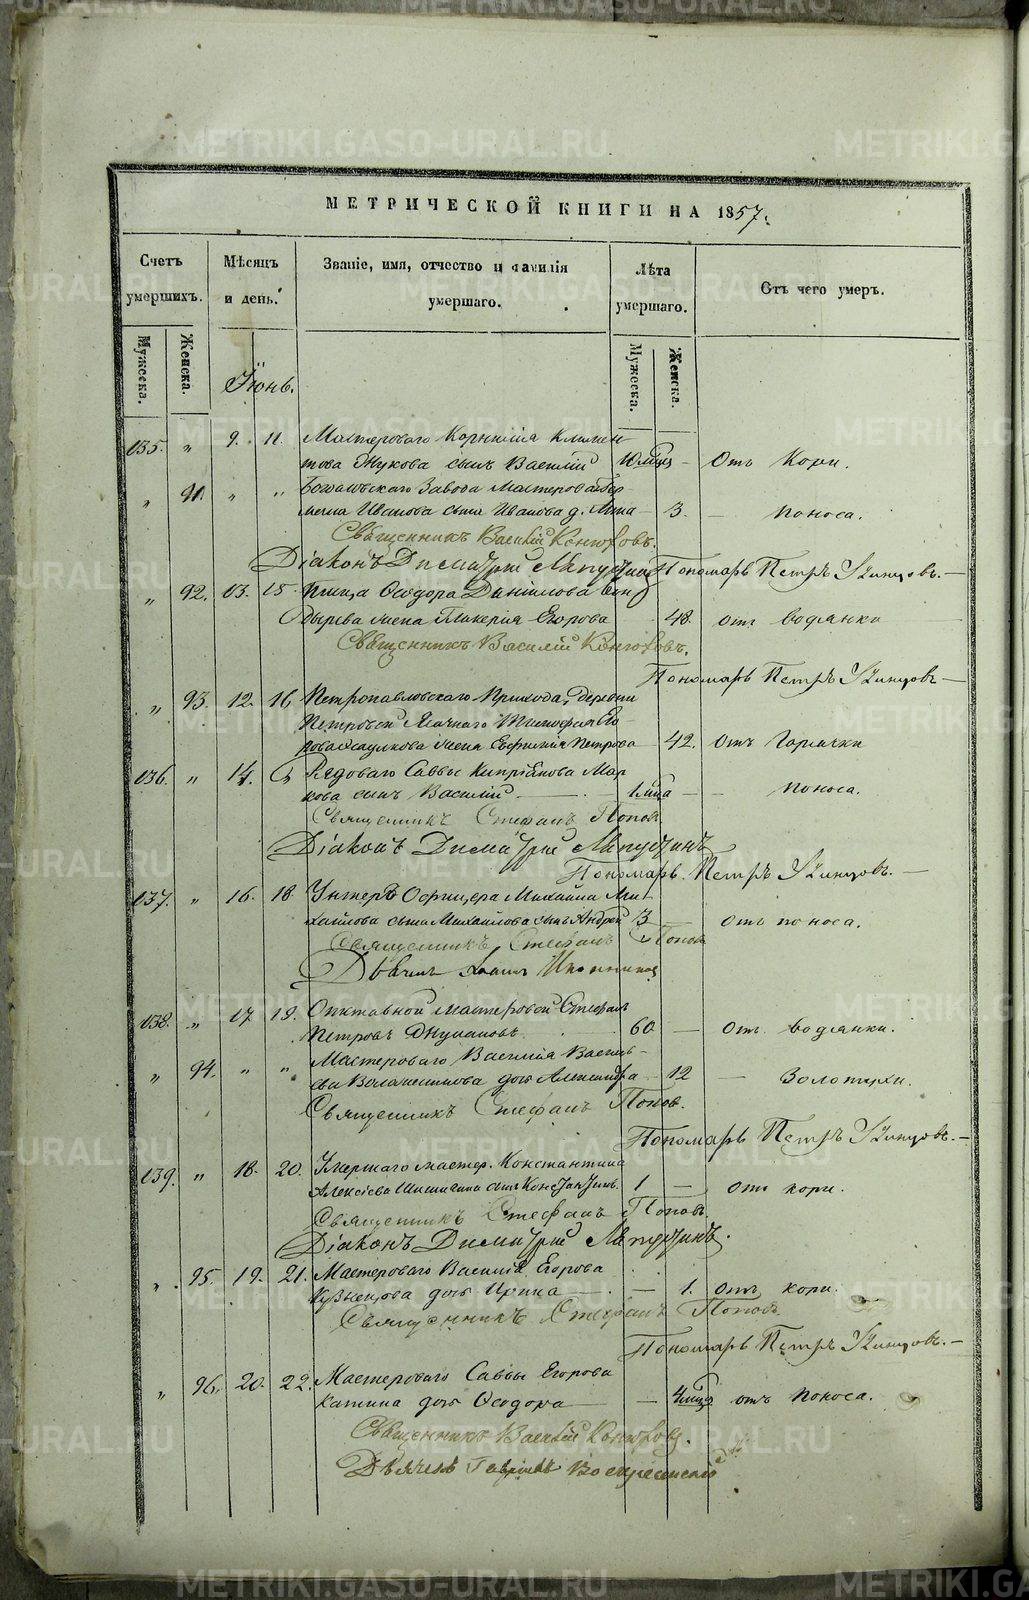 МЕТРИЧЕСКОЙ КНИГИ НА 1857.
Счетъ умершихъ.
Мѣсяцъ и день.
Званіе, имя, отчество и фамилія умершаго.
Лѣта умершаго.
Отъ чего умеръ.
Мужеска.
Женска.
Мужеска.
Женска.
Іюнь.
135. " 9. 11. Мастероваго Корнилія Климен-
това Жукова сынъ Василій 10 мѣц. — Отъ Кори.
" 91. " " завода Мастероваго
Иванова сына Иванова д. Анна — 3. — поноса.
Священникъ Василій Конюховъ.
Діаконъ Димитрій Ляпустинъ Пономарь Петръ
" 92. 13. 15. Ѳеодора Данилова
жена Гликерія Егорова 48. отъ водянки
Священникъ Василій Конюховъ.
Пономарь Петръ
" 93. 12. 16 Петропавловскаго Прихода, деревни
Петровой Тимофея Его-
рова жена Евфимія Петрова — 42. отъ Горячки
136. " 14. Рядоваго Саввы Кипріянова Мар-
кова сынъ Василій — 1 мѣца — — поноса.
Священникъ Стефанъ Попов
Діаконъ Димитрій Ляпустинъ
Пономарь Петръ
137. " 16. 18 Унтеръ Офицера Михаила Ми-
хайлова сына Михайлова сынъ Андрей 3 — отъ поноса.
Священникъ Стефанъ Попов
Дьячекъ
138. " 17 19. мастеровой Стефанъ
Петровъ 60 — отъ водянки.
" 94. " " Мастероваго Василія Василь-
ева дочь Александра — 12 — Золотухи.
Священникъ Стефанъ Попов.
Пономарь Петръ
139. " 18. 20. Умершаго мастер. Константина
Алексѣева Шишигина сынъ Константинъ 1 — отъ кори.
Священникъ Стефанъ Попов.
Діаконъ Димитрій Ляпустинъ.
" 95. 19. 21. Мастероваго Василія Егорова
Кузнецова дочь Ирина — 1. отъ кори.
Священникъ Стефанъ Попов
Пономарь Петръ
" 96. 20. 22. Мастероваго Саввы Егорова
Катина дочь Ѳеодора — 4 мѣц отъ поноса.
Священникъ Василій Конюховъ.
Дьячекъ Гавріилъ Воскресенскій
METRIKI.GASO-URAL.RU